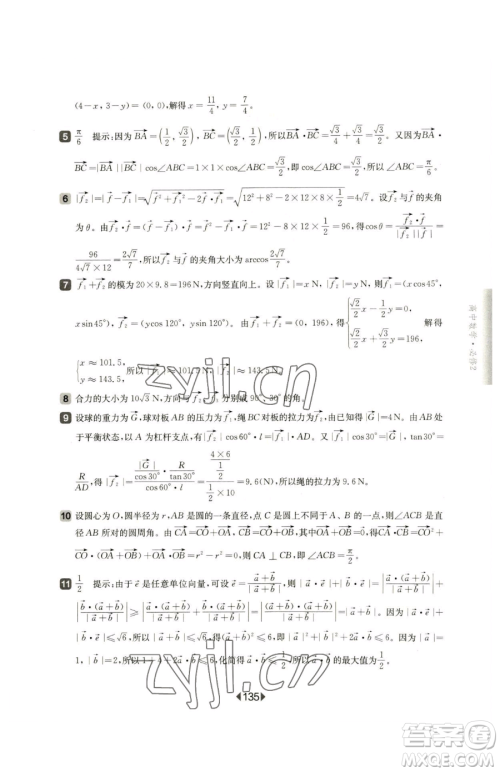 (4-x, 3-y)=(0, 0), 解得 x=11/4, y=7/4.
5 π/6 提示:因为 BA→=(1/2, √3/2), BC→=(√3/2, 1/2), 所以 BA→·BC→=√3/4+√3/4=√3/2. 又因为 BA→·
BC→=|BA→||BC→|cos∠ABC=1×1×cos∠ABC=√3/2, 即 cos∠ABC=√3/2, 所以∠ABC=π/6.
6 |f₂→|=|f→-f₁→|=√(f→²+f₁→²-2f→·f₁→)=√(12²+8²-2×12×8×1/2)=4√7. 设 f₂→ 与 f→ 的夹角
为 θ. 由 f₂→·f→=(f→-f₁→)·f→=12²-8×12×1/2=96, 得 cosθ=f₂→·f→/|f₂→||f→|=
96/(4√7×12)=2√7/7. 所以 f₂→ 与 f→ 的夹角大小为 arccos 2√7/7.
7 f₁→+f₂→ 的模为 20×9.8=196 N, 方向竖直向上. 设|f₁→|=x N, |f₂→|=y N, f₁→=(x cos45°,
x sin45°), f₂→=(y cos120°, y sin120°). 由 f₁→+f₂→=(0, 196), 得 {√2/2x-1/2y=0, √2/2x+√3/2y=196, 解得
{x≈101.5, y≈143.5, 所以|f₁→|≈101.5 N, |f₂→|≈143.5 N.
8 合力的大小为 10√3 N, 方向与 f₁→、f₂→ 分别成 90°、30°的角.
9 设球的重力为 G→, 球对板 AB 的压力为 f₁→, 绳 BC 对板的拉力为 f₂→. 由已知得|G→|=4 N. 由于
处于平衡状态, 以 A 为杠杆支点, 有|f₂→|cos60°·l=|f₁→|·AD, |f₁→|cos30°=|G→|, tan30°=
R/AD. 得|f₂→|=(|G→|/cos30°·R/tan30°)/(cos60°·l)=(4×6/(1/2))/(1/2×10)=9.6(N), 所以绳的拉力为 9.6 N.
10 设圆心为 O, 圆半径为 r, AB 是圆的一条直径, 点 C 是圆上不同于 A、B 的一点, ∠ACB 是直径 AB
所对的圆周角. 由 CA→=CO→+OA→, CB→=CO→+OB→, OA→=-OB→, 得 CA→·CB→=CO→²+
CO→·(OA→+OB→)+OA→·OB→=r²-r²=0. 于是 CA→⊥CB→, 即∠ACB=π/2.
11 1/2 提示:由于 e→ 是任意单位向量, 可设 e→=(a→+b→)/|a→+b→|, 则|a→·e→|+|b→·e→|=|a→·(a→+b→)/|a→+b→||+
|b→·(a→+b→)/|a→+b→||≥|a→·(a→+b→)/|a→+b→|+b→·(a→+b→)/|a→+b→||=|(a→+b→)·(a→+b→)/|a→+b→||=|a→+b→|. 因为|a→·e→|+
|b→·e→|≤√6, 所以|a→+b→|≤√6, 所以(a→+b→)²≤6, 即|a→|²+|b→|²+2a→·b→≤6. 因为|a→|=
1, |b→|=2, 所以 1+4+2a→·b→≤6, 化简得 a→·b→≤1/2, 所以 a→·b→ 的最大值为 1/2.
135
高中数学·必修2
zyjl.cn
zyjl.cn
答案圈
MXQE.COM